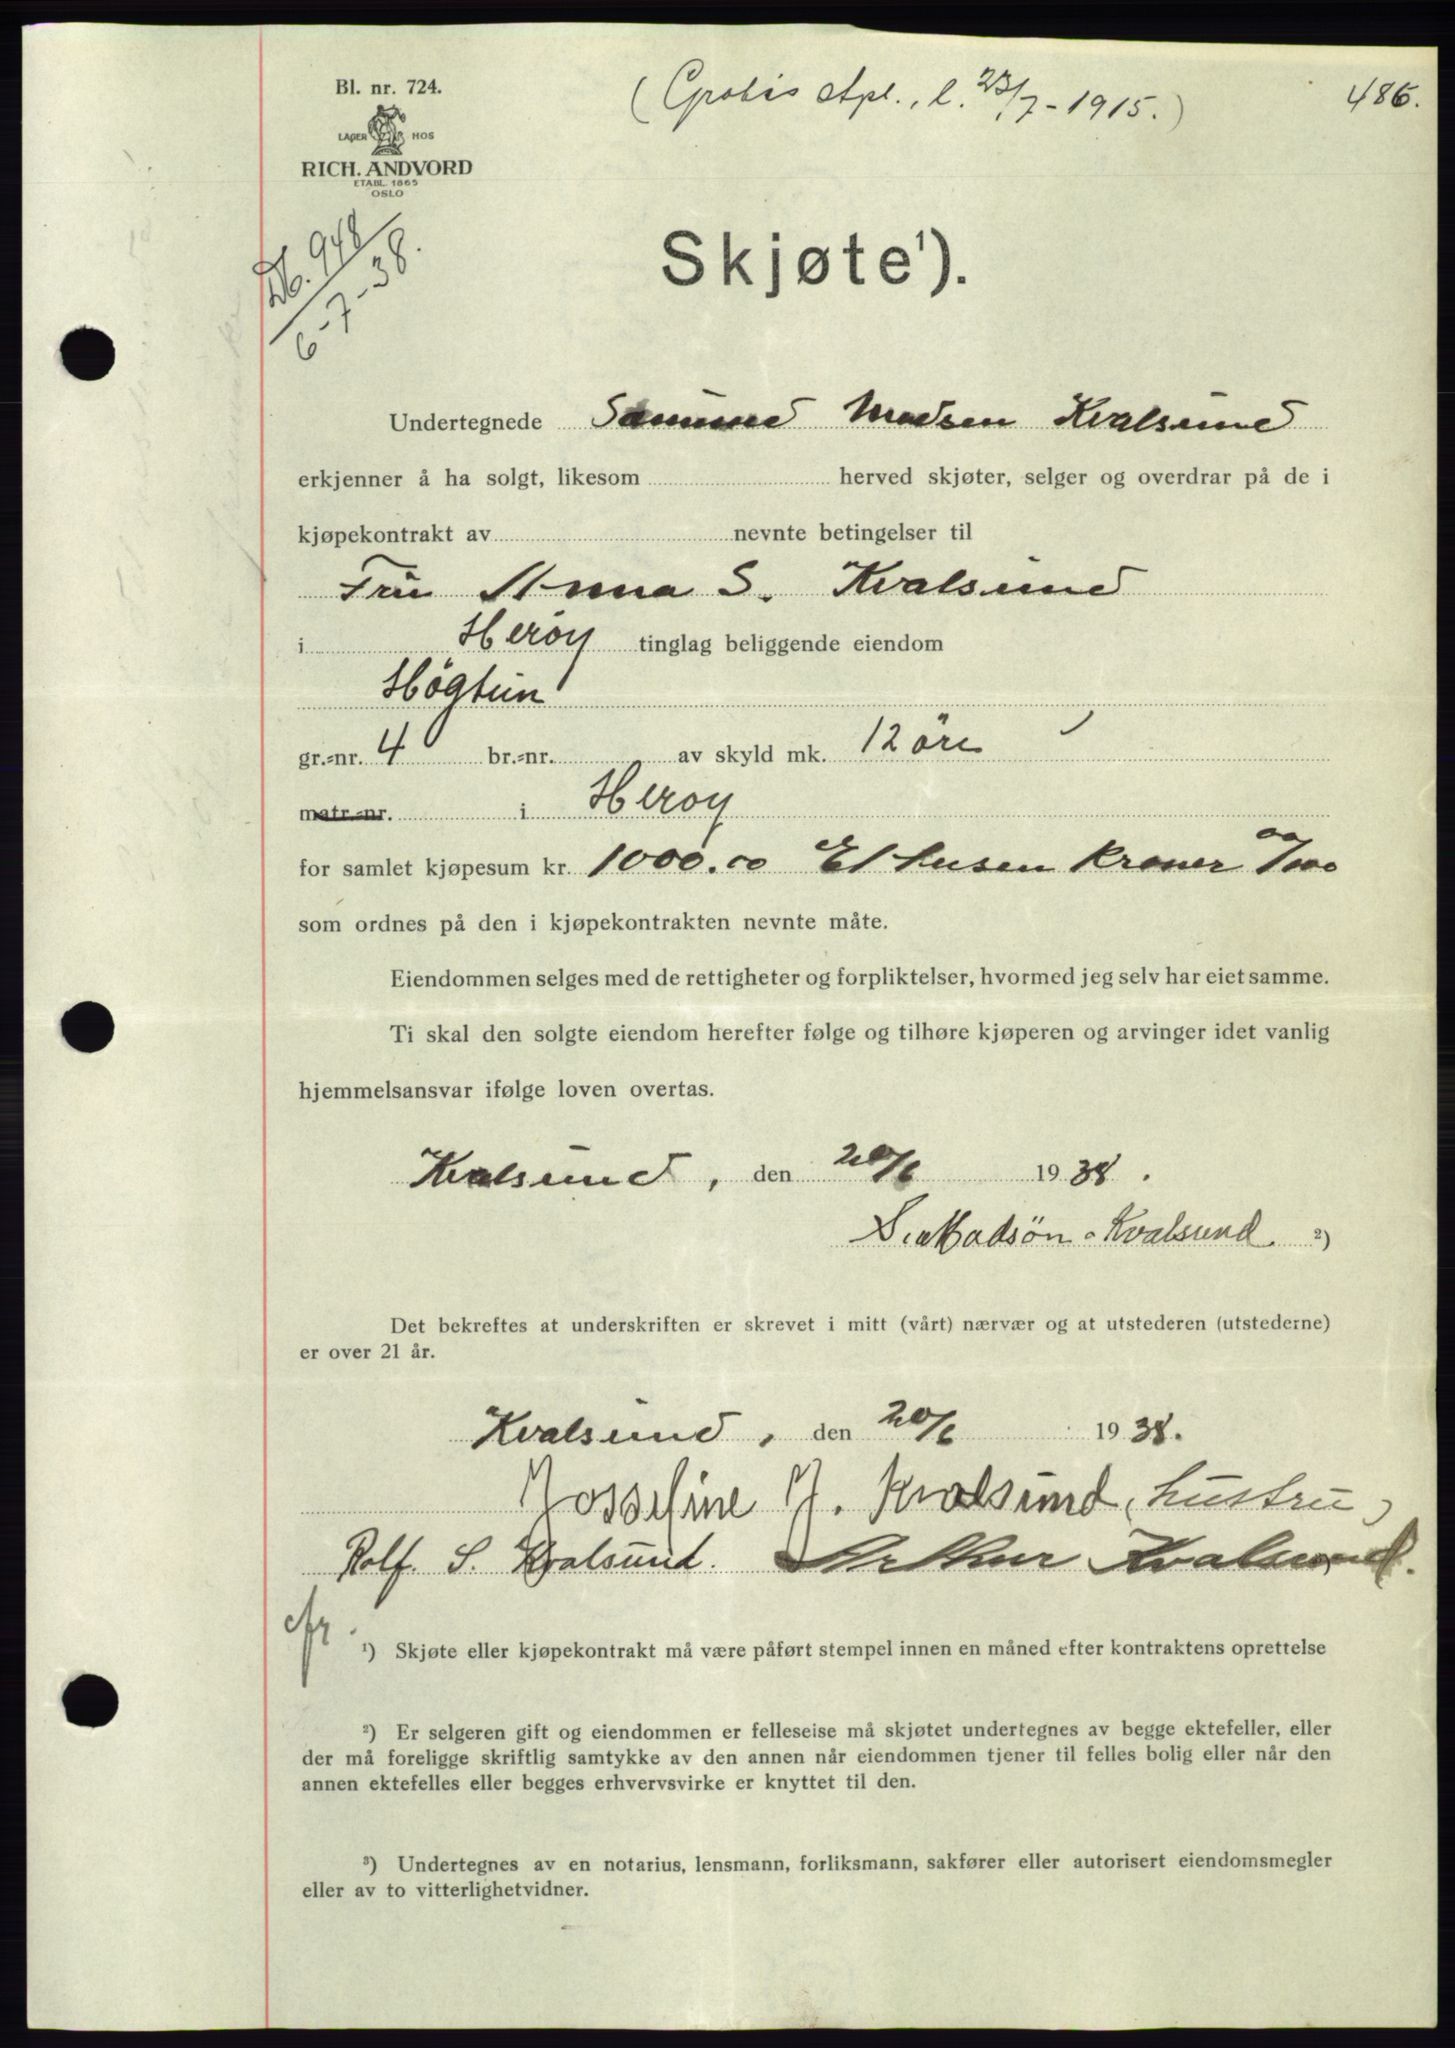 Bl. nr. 724.
LAGER HOS
RICH. ANDVORD
ETABL. 1865
OSLO
l. 23/7-1915.)
486.
948
6-7-38.
Skjøte¹).
Undertegnede Samund Madsen Kvalsund
erkjenner å ha solgt, likesom herved skjøter, selger og overdrar på de i
kjøpekontrakt av nevnte betingelser til
Fru Anna S. Kvalsund
i Herøy tinglag beliggende eiendom
Høgtun
gr.-nr. 4 br.-nr. av skyld mk. 12 öre
matr.-nr. i Herøy
for samlet kjøpesum kr. 1000.00 Et tusen Kroner 00/100
som ordnes på den i kjøpekontrakten nevnte måte.
Eiendommen selges med de rettigheter og forpliktelser, hvormed jeg selv har eiet samme.
Ti skal den solgte eiendom herefter følge og tilhøre kjøperen og arvinger idet vanlig
hjemmelsansvar ifølge loven overtas.
Kvalsund, den 20/6 1938.
S. Madsøn-Kvalsund. ²)
Det bekreftes at underskriften er skrevet i mitt (vårt) nærvær og at utstederen (utstederne)
er over 21 år.
Kvalsund, den 20/6 1938.
Jossefine J. Kvalsund (hustru)
Rolf. S. Kvalsund. Arthur Kvalsund.
¹) Skjøte eller kjøpekontrakt må være påført stempel innen en måned efter kontraktens oprettelse
²) Er selgeren gift og eiendommen er felleseise må skjøtet undertegnes av begge ektefeller, eller
der må foreligge skriftlig samtykke av den annen når eiendommen tjener til felles bolig eller når den
annen ektefelles eller begges erhvervsvirke er knyttet til den.
³) Undertegnes av en notarius, lensmann, forliksmann, sakfører eller autorisert eiendomsmegler
eller av to vitterlighetvidner.